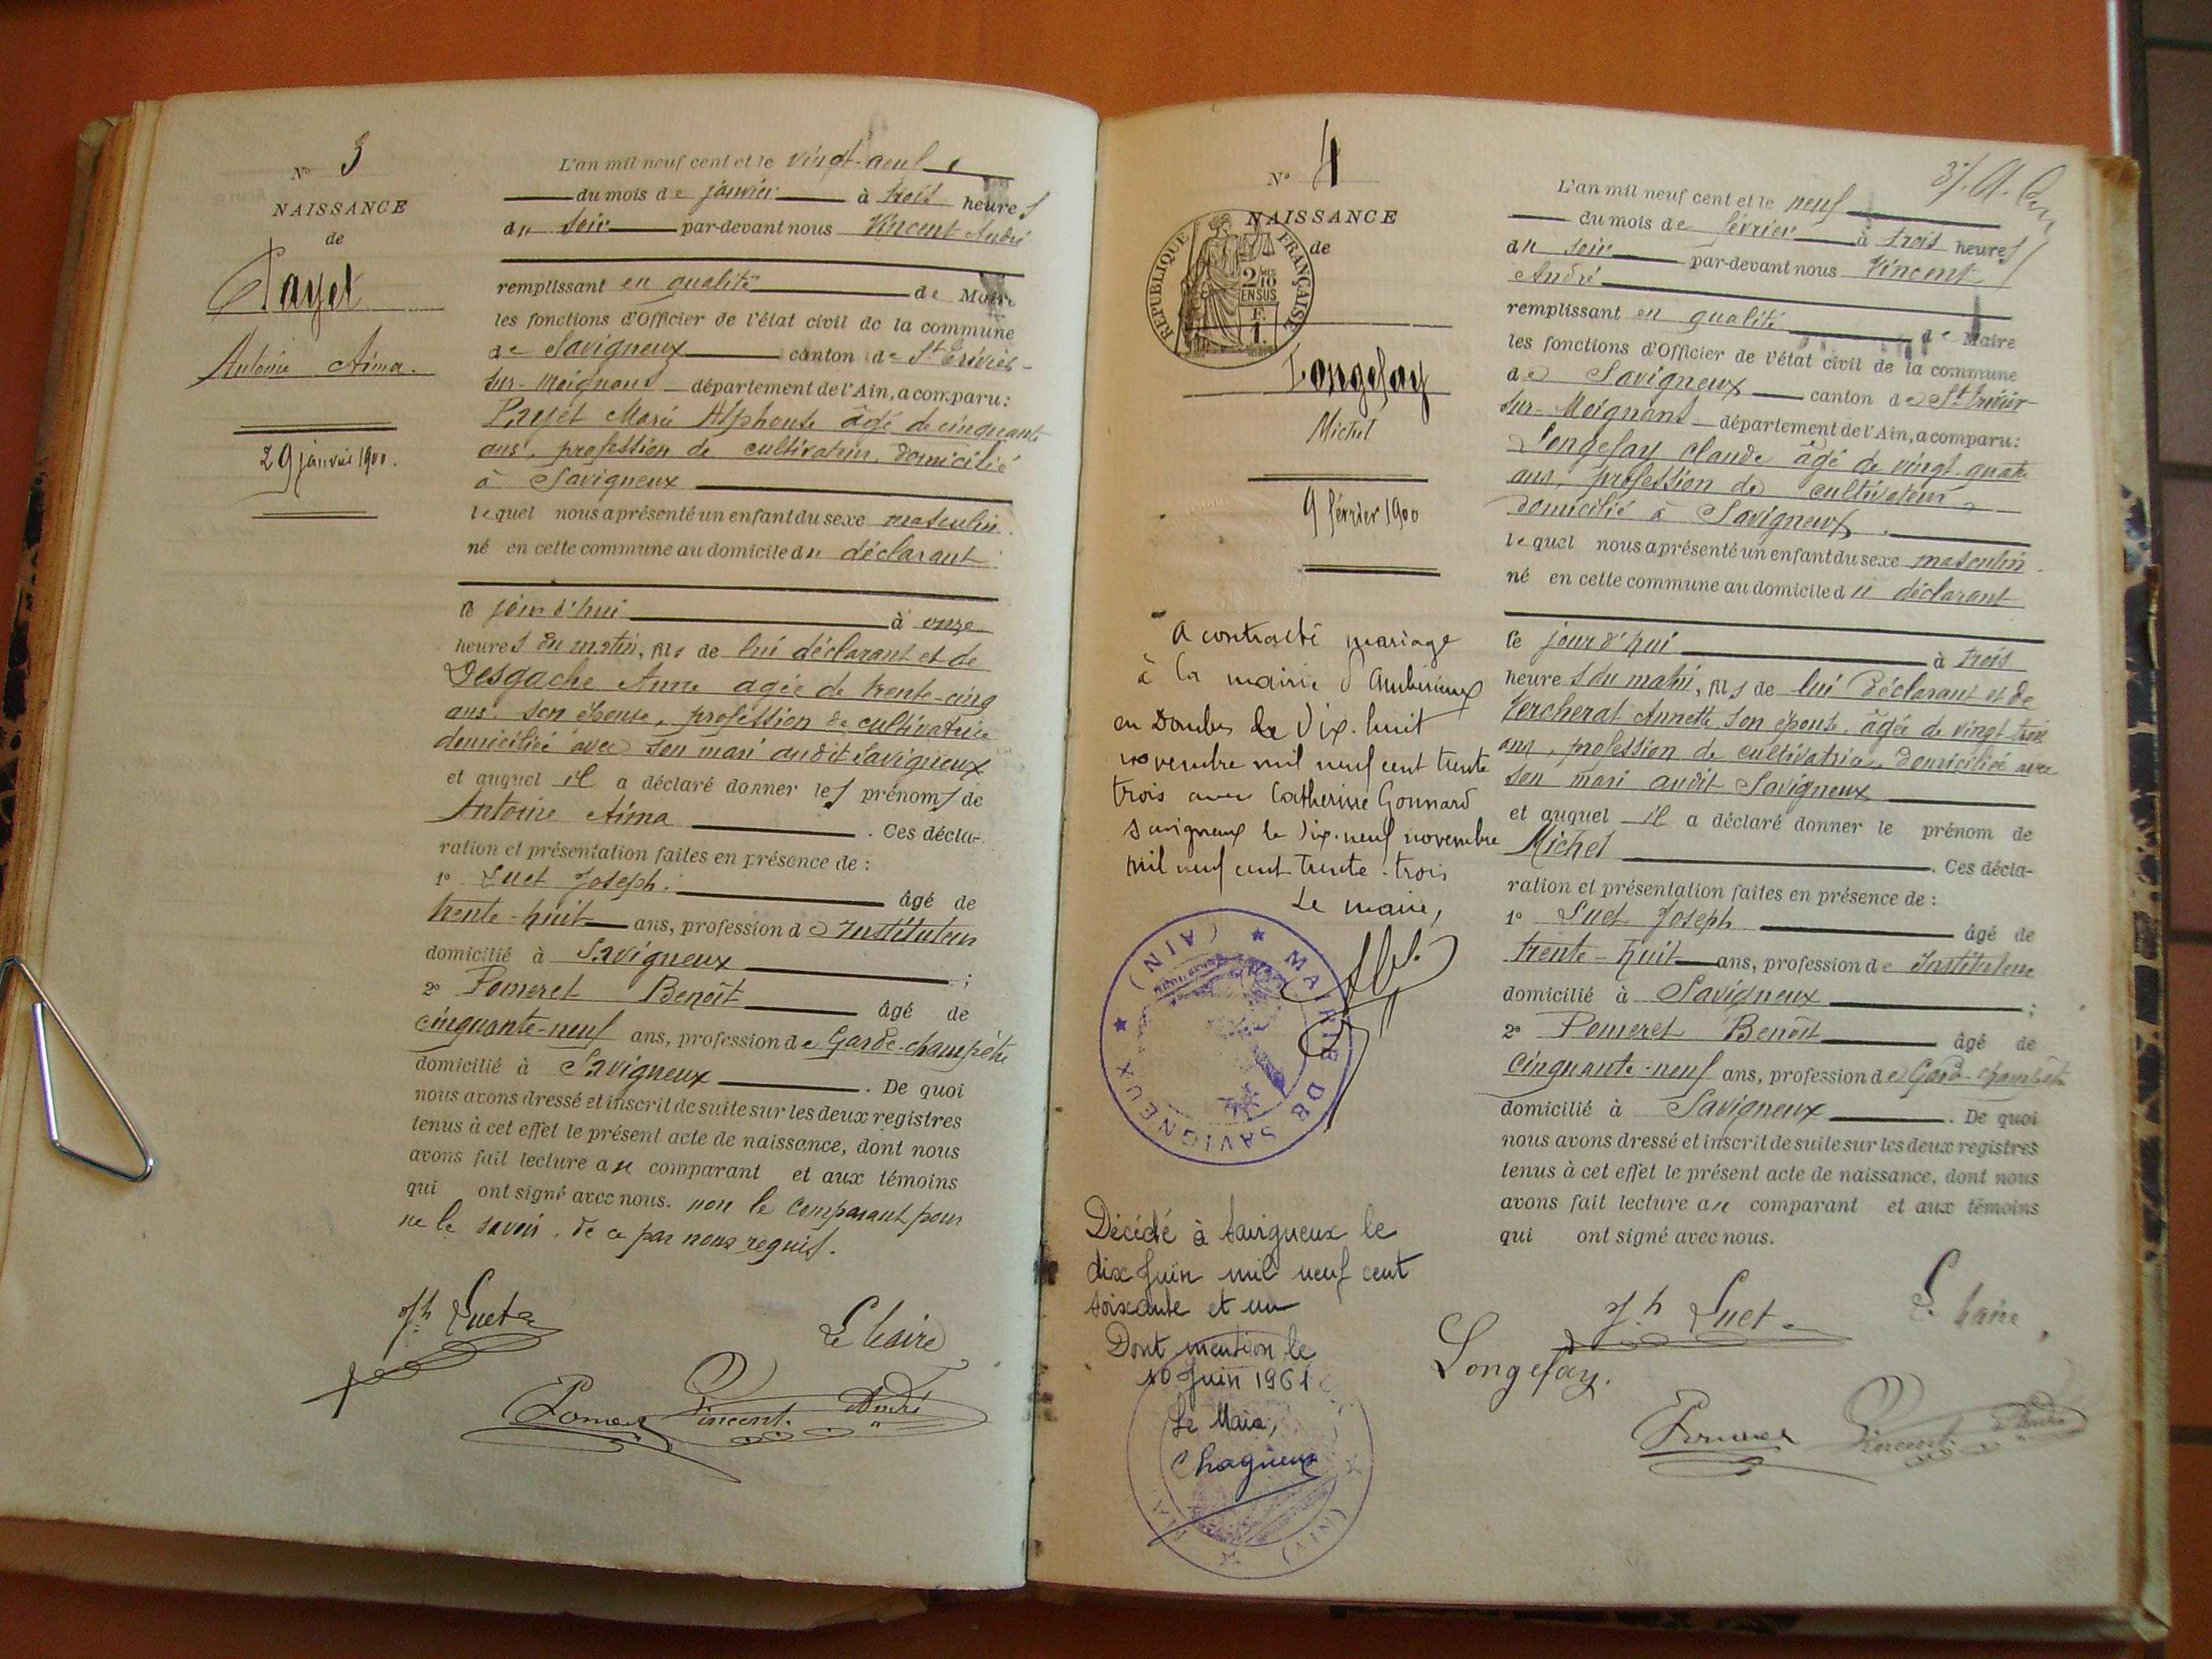 N° 3
NAISSANCE
de
Payet
Antoine Aima.
29 janvier 1900.
L'an mil neuf cent et le vingt-neuf
du mois de janvier à trois heures
du soir par-devant nous Vincent André
remplissant en qualité de Maire
les fonctions d'Officier de l'état civil de la commune
de Savigneux canton de St Trivier-
sur-Moignans département de l'Ain, a comparu:
Payet Marie Alphonse âgé de cinquante
ans, profession de cultivateur, domicilié
à Savigneux
lequel nous a présenté un enfant du sexe masculin.
né en cette commune au domicile du déclarant
ce jour d'hui à onze
heures du matin, fils de lui déclarant et de
Desgache Anne agée de trente-cinq
ans, son épouse, profession de cultivatrice
domiciliée avec son mari audit Savigneux
et auquel il a déclaré donner les prénoms de
Antoine Aima . Ces décla-
ration et présentation faites en présence de :
1° Luet Joseph. âgé de
trente-huit ans, profession de Instituteur
domicilié à Savigneux ;
2° Pomeret Benoît âgé de
cinquante-neuf ans, profession de Garde-champêtre
domicilié à Savigneux . De quoi
nous avons dressé et inscrit de suite sur les deux registres
tenus à cet effet le présent acte de naissance, dont nous
avons fait lecture au comparant et aux témoins
qui ont signé avec nous. non le comparant pour
ne le savoir, de ce par nous requis.
Jh Luet
Le Maire
Pomeret Vincent André
N° 4
NAISSANCE
de
RÉPUBLIQUE FRANÇAISE
2/10 EN SUS
F. 1.
Longefay
Michel
9 février 1900
A contracté mariage
à la mairie d'Ambérieux
en Dombes le dix-huit
novembre mil neuf cent trente
trois avec Catherine Gonnard
Savigneux le dix-neuf novembre
mil neuf cent trente-trois
Le maire,
MAIRIE DE SAVIGNEUX (AIN)
Décédé à Savigneux le
dix Juin mil neuf cent
soixante et un
Dont mention le
10 Juin 1961
Le Maire,
Chagneux
(AIN)
L'an mil neuf cent et le neuf
du mois de février à trois heures
du soir par-devant nous Vincent
André
remplissant en qualité de Maire
les fonctions d'Officier de l'état civil de la commune
de Savigneux canton de St Trivier
sur-Moignans département de l'Ain, a comparu:
Longefay Claude âgé de vingt-quatre
ans, profession de cultivateur
domicilié à Savigneux.
lequel nous a présenté un enfant du sexe masculin
né en cette commune au domicile du déclarant
ce jour d'hui à trois
heures du matin, fils de lui déclarant et de
Vercherat Annette, son épouse, âgée de vingt-trois
ans, profession de cultivatrice, domiciliée avec
son mari audit Savigneux
et auquel il a déclaré donner le prénom de
Michel . Ces décla-
ration et présentation faites en présence de :
1° Luet Joseph âgé de
trente-huit ans, profession de Instituteur
domicilié à Savigneux ;
2° Pomeret Benoît âgé de
cinquante-neuf ans, profession de Garde-champêtre
domicilié à Savigneux . De quoi
nous avons dressé et inscrit de suite sur les deux registres
tenus à cet effet le présent acte de naissance, dont nous
avons fait lecture au comparant et aux témoins
qui ont signé avec nous.
Jh Luet. Le Maire,
Longefay.
Pomeret Vincent André